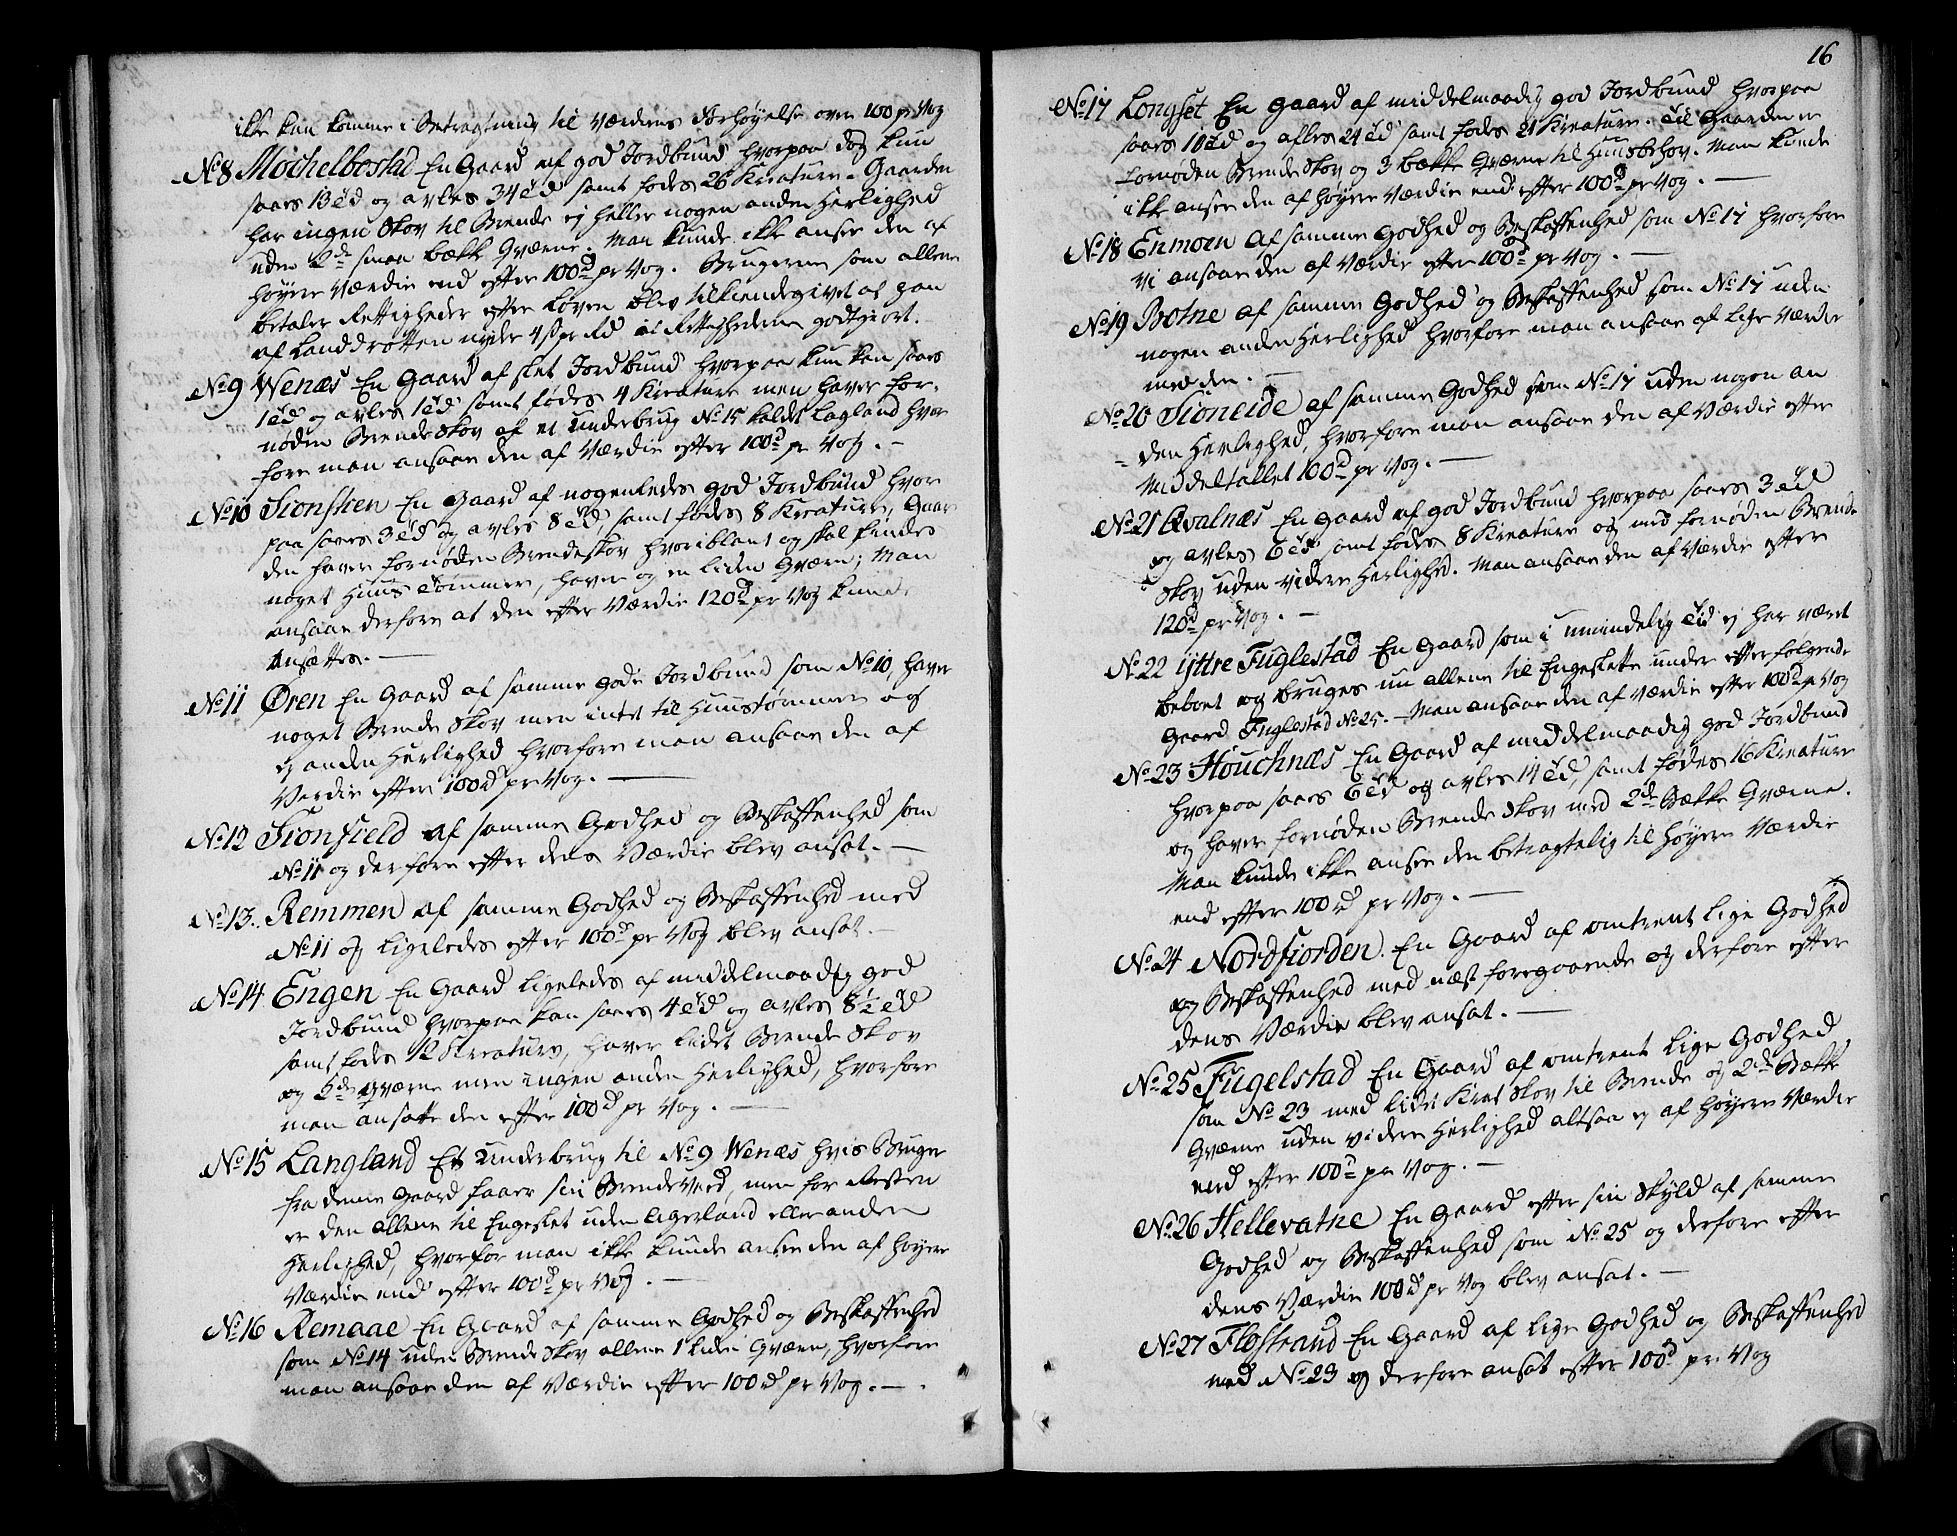 ikke kan komme i Betragtning til Værdiens Forhøyelse over 100 pr Vog
No 8 Mochelbostad En Gaard af god Jordbund hvorpaa dog kun
saaes 13 Td og avles 34 Td samt fødes 26 Kreature. Gaarden
har ingen Skov til Brende ej heller nogen anden Herlighed
uden 2de smaa bække Qværne. Man kunde ikke ansee den af
høyere Værdie end efter 100d pr Vog. Brugerne som allene
betaler Rettigheder efter Loven blev tilkiendegivet at paa
af Landdrotten nyder 4s pr Rd i Rettighederne godtgiort.
No 9 Wenæs En Gaard af slet Jordbund hvorpaa kun kan saaes
1 Td og avles 1 Td samt fødes 4 Kreature men haver for-
nøden Brende Skov af et underbrug No 15 kaldet Lagland hvor
fore man ansaae den af Værdie efter 100d pr Vog. —
No 10 Sionshen En Gaard af nogenledes god Jordbund hvor
paa saaes 3 Td og avles 8 Td, samt fødes 8 Kreature, Gaar
den haver fornøden Brendeskov hvoriblant og skal findes
noget Huus Tømmer, haver og en liden Qværn; Man
ansaae derfore at den efter Værdie 120d pr Vog kunde
ansættes. —
No 11 Øren En Gaard af samme gode Jordbund som No 10, haver
noget Brende Skov men intet til Huustømmer og
ej anden Herlighed hvorfore man ansaae den af
Værdie efter 100d pr Vog. —
No 12 Sionfield af samme Godhed og Beskaffenhed som
No 11 og derfore efter dens Værdie blev ansat. —
No 13. Remmen af samme Godhed og Beskaffenhed med
No 11 og ligeledes efter 100d pr Vog blev ansat. —
No 14. Engen En Gaard ligeledes af middelmaadig god
Jordbund hvorpaa kan saaes 4 Td og avles 8½ Td
samt fødes 12 Kreature, haver lidet Brende Skov
og 5de Qværne men ingen anden Herlighed, hvorfore
man ansatte den efter 100d pr Vog. —
No 15 Langland Et underbrug til No 9 Wenæs hvis Bruger
fra denne Gaard faaer sin Brendeved, men for Resten
er den allene til Engeslet uden Agerland eller anden
Herlighed, hvorfor man ikke kunde ansee den af høyere
Værdie end efter 100d pr Vog. —
No 16 Remaae En Gaard af samme Godhed og Beskaffenhed
som No 14 uden Brende Skov allene 1 liden Qværn, hvorfore
man ansaae den af Værdie efter 100d pr Vog. —
16
No 17 Longset En Gaard af middelmaadig god Jordbund hvorpaa
saaes 10 Td og avles 24 Td samt fødes 21 Kreature. Til Gaarden er
fornøden Brende Skov og 3 bække Qværne til Huusbehov. Man kunde
ikke ansee den af høyere Værdie end efter 100d pr Vog. —
No 18 Enmoen Af samme Godhed og Beskaffenhed som No 17 hvorfore
vi ansaae den af Værdie efter 100d pr Vog. —
No 19 Botne af samme Godhed og Beskaffenhed som No 17 uden
nogen anden Herlighed hvorfore man ansaae af lige Værdie
med den. —
No 20 Sioneide af samme Godhed som No 17 uden nogen an
= den Herlighed, hvorfore man ansaae den af Værdie efter
Middeltallet 100d pr Vog. —
No 21 Qvalnæs En Gaard af god Jordbund hvorpaa saaes 3 Td
og avles 6 Td samt fødes 8 Kreature og med fornøden Brende
Skov uden videre Herlighed. Man ansaae den af Værdie efter
120d pr Vog. —
No 22 ijttre Fuglestad En Gaard som i umindelig Tid ej har været
beboet og bruges nu allene til Engeslette under efterfølgende
Gaard Fuglestad No 25. — Man ansaae den af Værdie efter 100d pr Vog
No 23 Houchnæs En Gaard af middelmaadig god Jordbund
hvorpaa saaes 6 Td og avles 14 Td, samt fødes 16 Kreature
og haver fornøden Brende Skov med 2de Bække Qværne.
Man kunde ikke ansee den betragtelig til høyere Værdie
end efter 100d pr Vog. —
No 24 Nordfiorden. En Gaard af omtrent lige Godhed
og Beskaffenhed med næst foregaaende og derfore efter
dens Værdie blev ansat. —
No 25 Fugelstad En Gaard af omtrent lige Godhed
som No 23 med lidet Krat Skov til Brende og 2de Bække
Qværne uden videre Herlighed altsaa ej af høyere Værdie
end efter 100d pr Vog. —
No 26 Hellevatne En Gaard efter sin Skyld af samme
Godhed og Beskaffenhed som No 25 og derfore efter
dens Værdie 100d pr Vog blev ansat. —
No 27 Flostrand En Gaard af lige Godhed og Beskaffenhed
med No 23 og derfore ansat efter 100d pr Vog